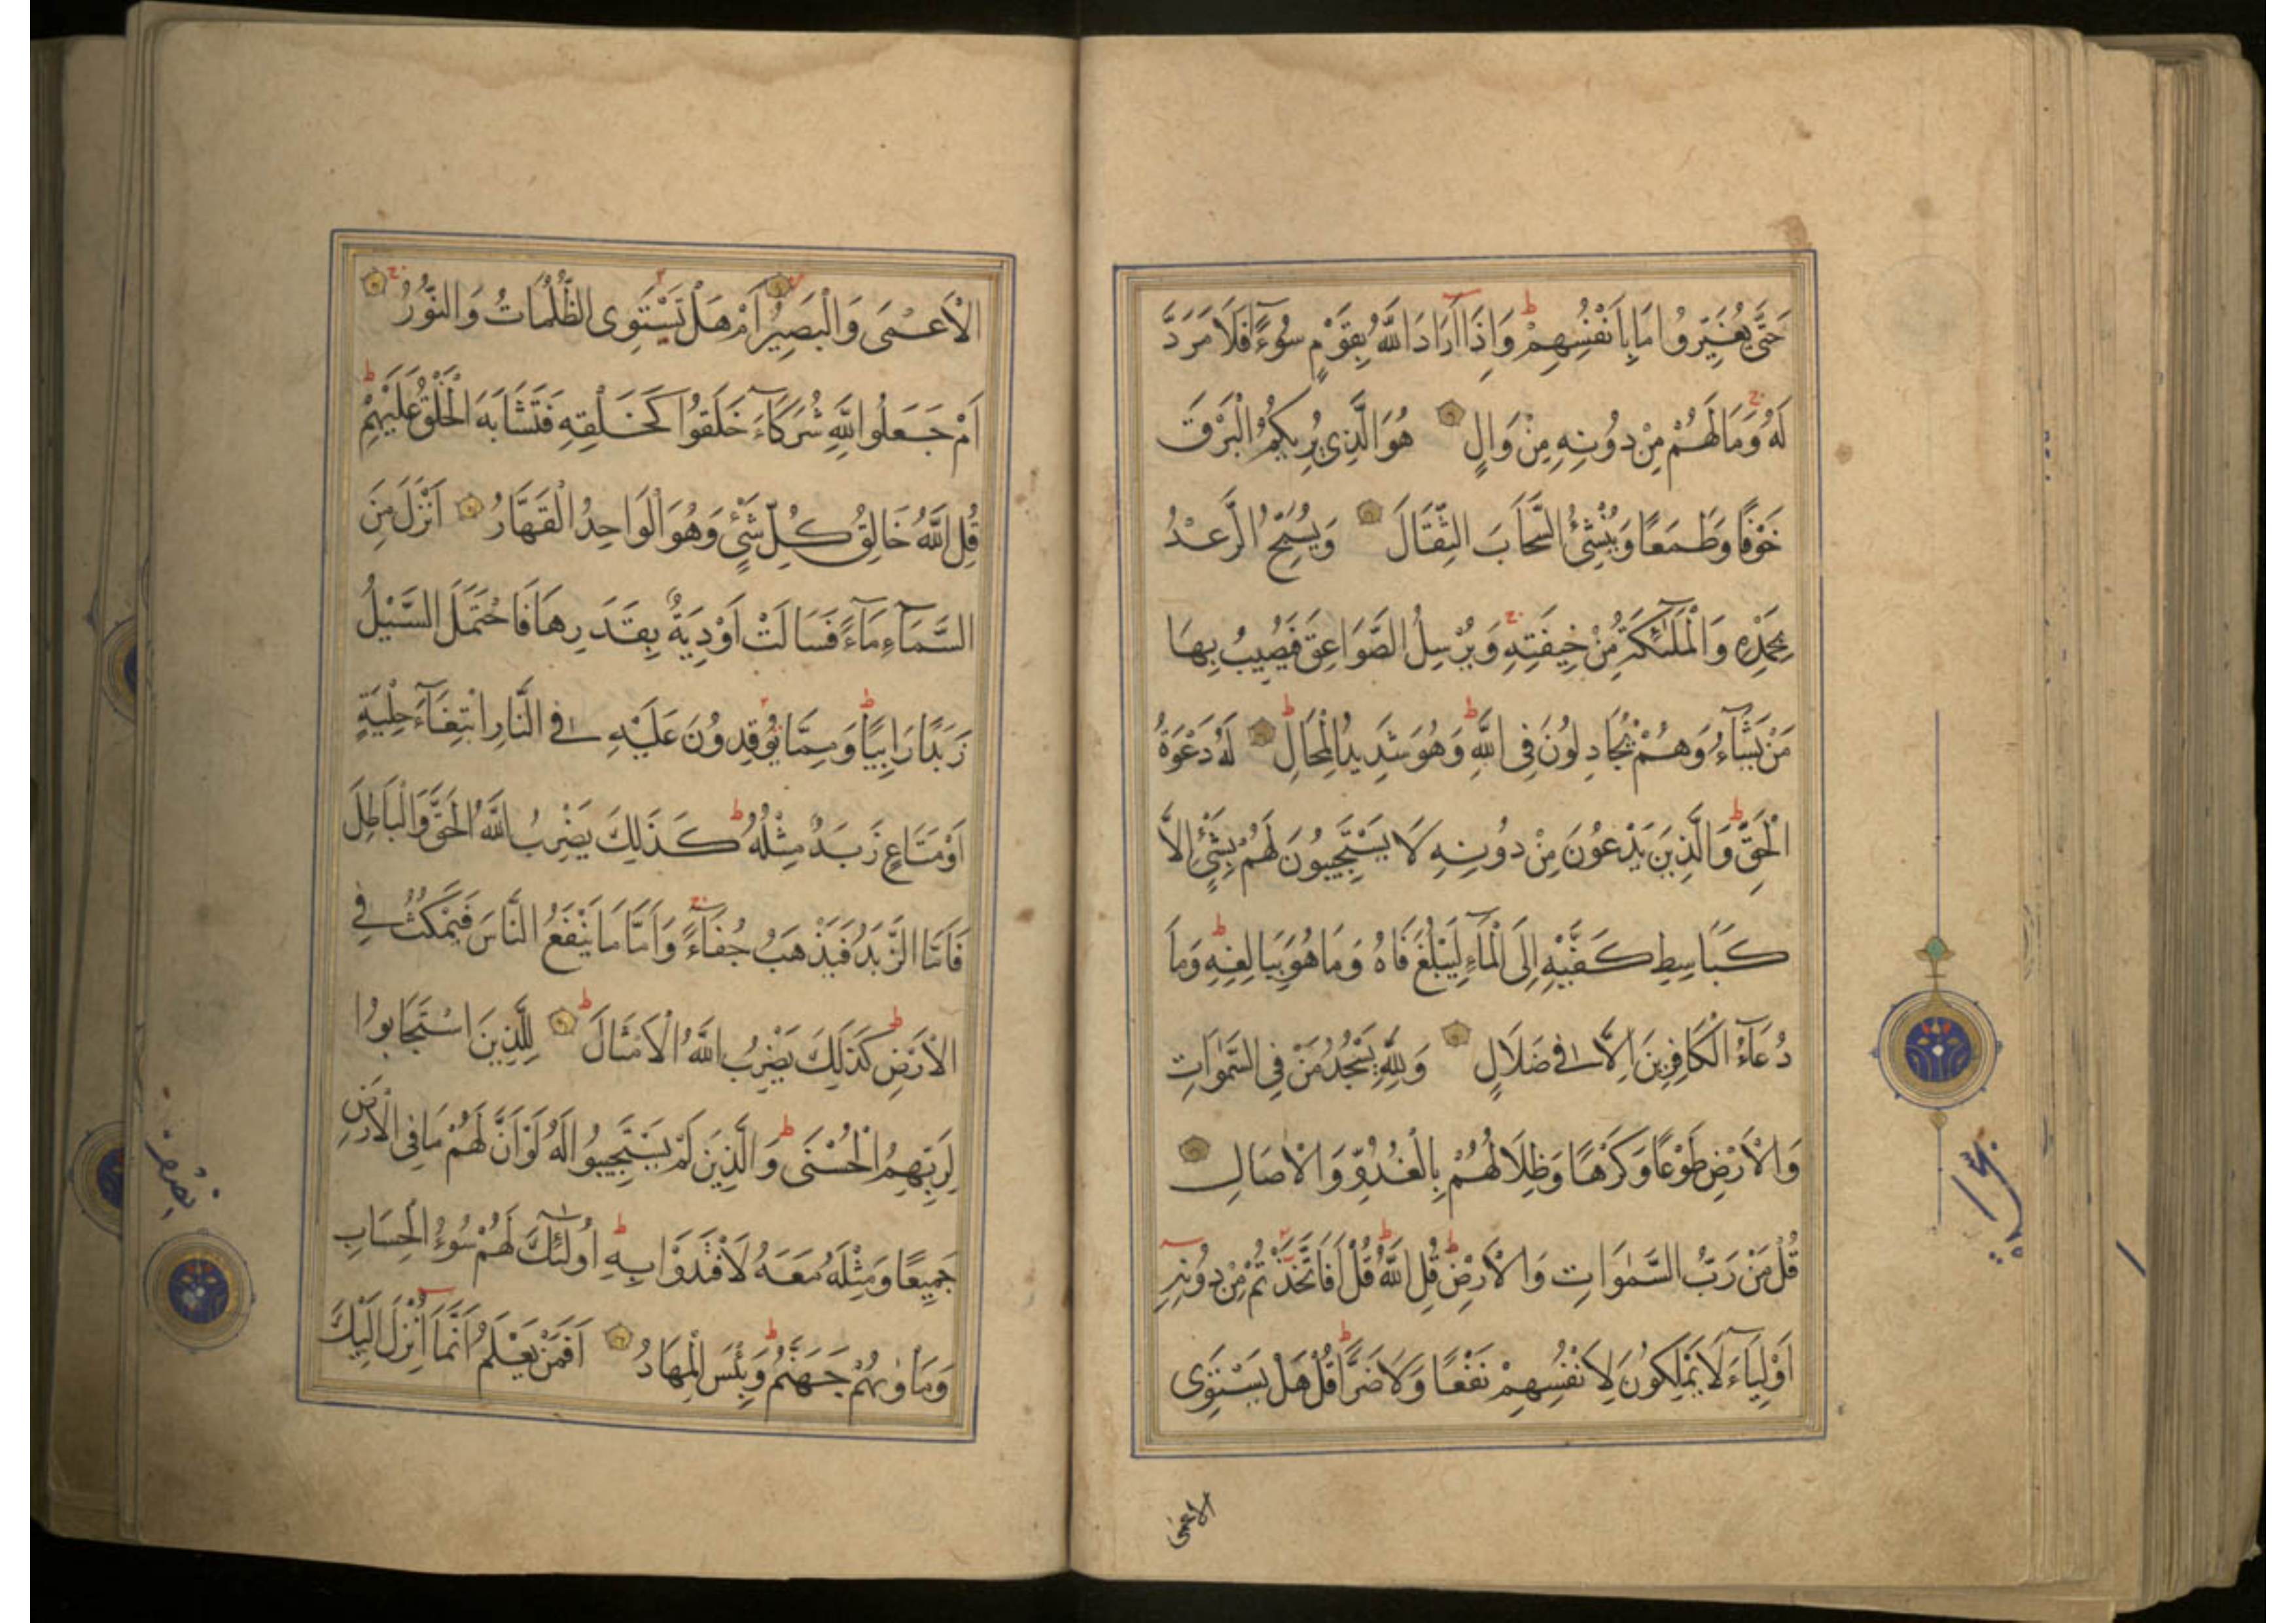 حَتَّى يُغَيِّرُوا مَا بِاَنْفُسِهِمْ ط وَاِذَا اَرَادَ اللّٰهُ بِقَوْمٍ سُوءً فَلَا مَرَدَّ
لَهُ ج وَمَا لَهُمْ مِنْ دُونِهِ مِنْ وَالٍ هُوَ الَّذِي يُرِيكُمُ الْبَرْقَ
خَوْفًا وَطَمَعًا وَيُنْشِئُ السَّحَابَ الثِّقَالَ وَيُسَبِّحُ الرَّعْدُ
بِحَمْدِهِ وَالْمَلٰٓئِكَةُ مِنْ خِيفَتِهِ ج وَيُرْسِلُ الصَّوَاعِقَ فَيُصِيبُ بِهَا
مَنْ يَشَآءُ وَهُمْ يُجَادِلُونَ فِي اللّٰهِ ط وَهُوَ شَدِيدُ الْمِحَالِ ط لَهُ دَعْوَةُ
الْحَقِّ ط وَالَّذِينَ يَدْعُونَ مِنْ دُونِهِ لَا يَسْتَجِيبُونَ لَهُمْ بِشَيْءٍ اِلَّا
كَبَاسِطِ كَفَّيْهِ اِلَى الْمَآءِ لِيَبْلُغَ فَاهُ وَمَا هُوَ بِبَالِغِهِ ط وَمَا
دُعَآءُ الْكَافِرِينَ اِلَّا فِي ضَلَالٍ وَلِلّٰهِ يَسْجُدُ مَنْ فِي السَّمٰوَاتِ
وَالْاَرْضِ طَوْعًا وَكَرْهًا وَظِلَالُهُمْ بِالْغُدُوِّ وَالْاٰصَالِ
قُلْ مَنْ رَبُّ السَّمٰوَاتِ وَالْاَرْضِ ط قُلِ اللّٰهُ ط قُلْ اَفَاتَّخَذْتُمْ مِنْ دُونِهِ
اَوْلِيَآءَ لَا يَمْلِكُونَ لِاَنْفُسِهِمْ نَفْعًا وَلَا ضَرًّا ط قُلْ هَلْ يَسْتَوِى
الاعمى
الْاَعْمَى وَالْبَصِيرُ اَمْ هَلْ تَسْتَوِى الظُّلُمَاتُ وَالنُّورُ ج
اَمْ جَعَلُوا لِلّٰهِ شُرَكَآءَ خَلَقُوا كَخَلْقِهِ فَتَشَابَهَ الْخَلْقُ عَلَيْهِمْ ط
قُلِ اللّٰهُ خَالِقُ كُلِّ شَيْءٍ وَهُوَ الْوَاحِدُ الْقَهَّارُ اَنْزَلَ مِنَ
السَّمَآءِ مَآءً فَسَالَتْ اَوْدِيَةٌ بِقَدَرِهَا فَاحْتَمَلَ السَّيْلُ
زَبَدًا رَابِيًا ط وَمِمَّا يُوقِدُونَ عَلَيْهِ فِي النَّارِ ابْتِغَآءَ حِلْيَةٍ
اَوْ مَتَاعٍ زَبَدٌ مِثْلُهُ ط كَذَلِكَ يَضْرِبُ اللّٰهُ الْحَقَّ وَالْبَاطِلَ
فَاَمَّا الزَّبَدُ فَيَذْهَبُ جُفَآءً ج وَاَمَّا مَا يَنْفَعُ النَّاسَ فَيَمْكُثُ فِي
الْاَرْضِ ط كَذَلِكَ يَضْرِبُ اللّٰهُ الْاَمْثَالَ ط لِلَّذِينَ اسْتَجَابُوا
لِرَبِّهِمُ الْحُسْنَى ط وَالَّذِينَ لَمْ يَسْتَجِيبُوا لَهُ لَوْ اَنَّ لَهُمْ مَا فِي الْاَرْضِ
جَمِيعًا وَمِثْلَهُ مَعَهُ لَافْتَدَوْا بِهِ ط اُولٰٓئِكَ لَهُمْ سُوءُ الْحِسَابِ
وَمَأْوٰىهُمْ جَهَنَّمُ ط وَبِئْسَ الْمِهَادُ اَفَمَنْ يَعْلَمُ اَنَّمَا اُنْزِلَ اِلَيْكَ